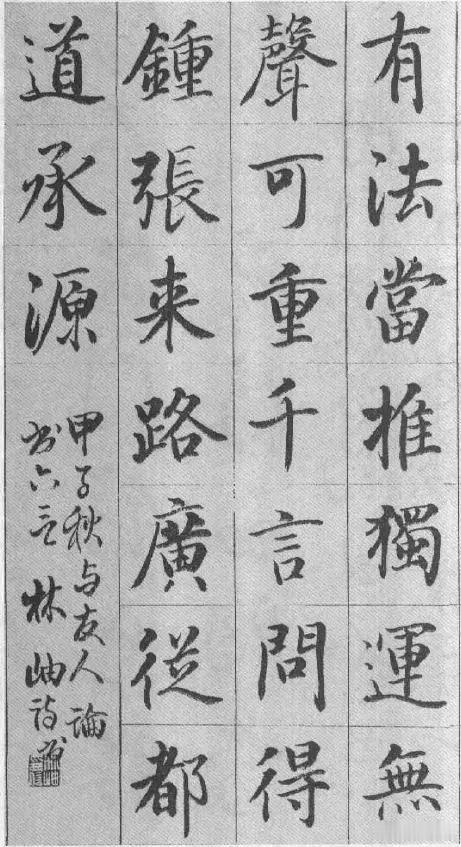 有法當推獨運無
聲可重千言問得
鍾張来路廣從都
道承源
甲子秋与友人論
书六言 林岫诗并